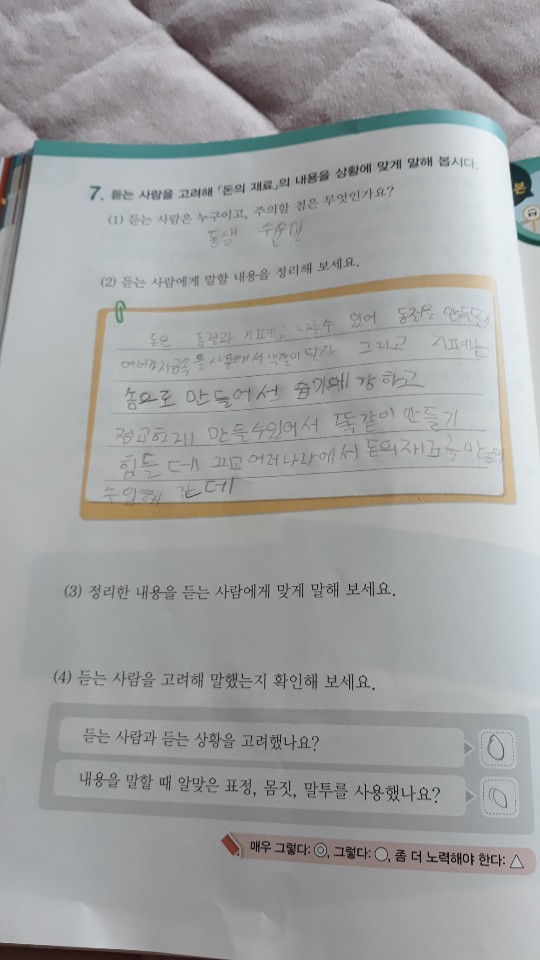 7. 듣는 사람을 고려해 「돈의 재료」의 내용을 상황에 맞게 말해 봅시다.
(1) 듣는 사람은 누구이고, 주의할 점은 무엇인가요?
동생
(2) 듣는 사람에게 말할 내용을 정리해 보세요.
돈은 동전과 지폐로 나눌수 있어 동전을
여러가지금속을 사용해서 색깔이 달라 그리고 지폐는
솜으로 만들어서 습기에 강하고
정교하게 만들수있어서 똑같이 만들기
힘들 데 그리고 여러나라에서 돈의재료를
데
(3) 정리한 내용을 듣는 사람에게 맞게 말해 보세요.
(4) 듣는 사람을 고려해 말했는지 확인해 보세요.
듣는 사람과 듣는 상황을 고려했나요?
내용을 말할 때 알맞은 표정, 몸짓, 말투를 사용했나요?
매우 그렇다: ◎, 그렇다: ○, 좀 더 노력해야 한다: △
본